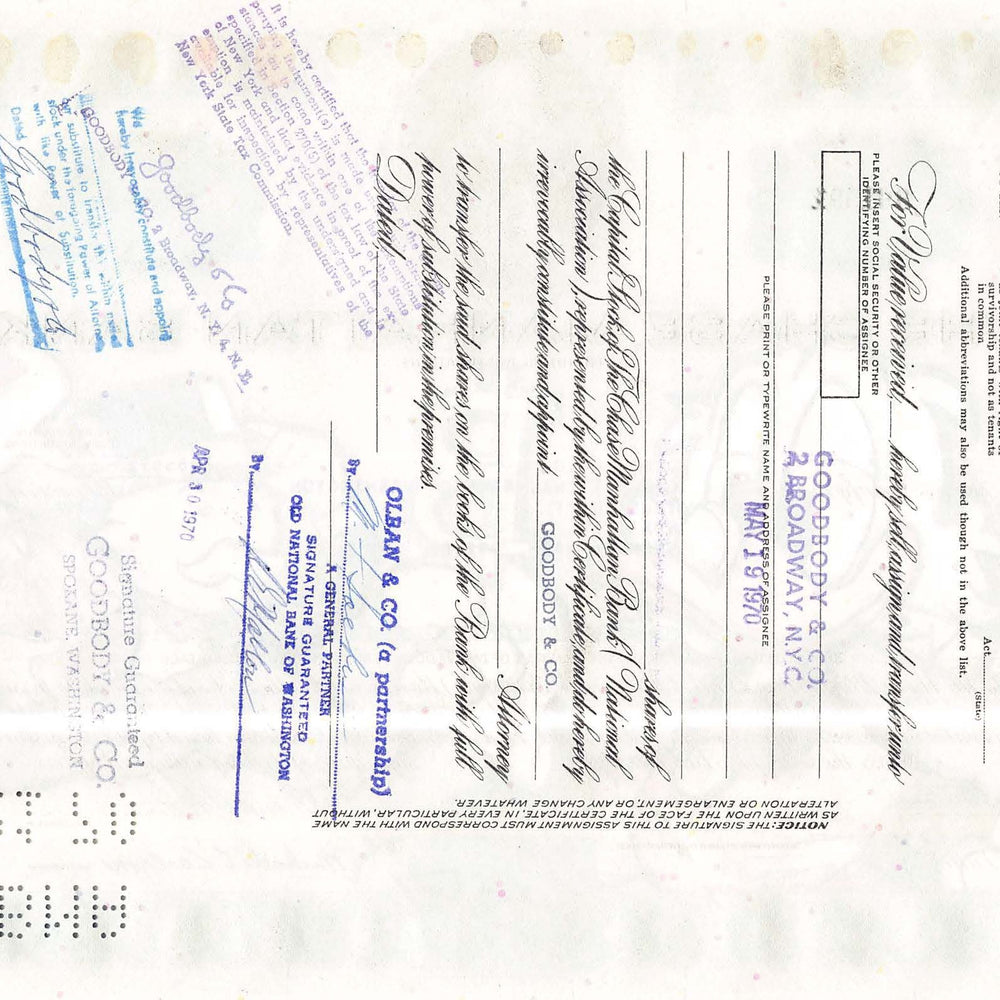 survivorship and not as tenants
in common
Additional abbreviations may also be used though not in the above list.
Act
(State)
For Value received, hereby sell, assign and transfer unto
PLEASE INSERT SOCIAL SECURITY OR OTHER
IDENTIFYING NUMBER OF ASSIGNEE
GOODBODY & CO.
2 BROADWAY, N.Y.C.
PLEASE PRINT OR TYPEWRITE NAME AND ADDRESS OF ASSIGNEE
MAY 19 1970
shares of
the Capital Stock of The Chase Manhattan Bank (National
Association) represented by the within Certificate, and do hereby
irrevocably constitute and appoint
GOODBODY & CO.
Attorney
to transfer the said shares on the books of the Bank with full
power of substitution in the premises.
Dated,
OLBAN & CO. (a partnership)
By
A GENERAL PARTNER
SIGNATURE GUARANTEED
OLD NATIONAL BANK OF WASHINGTON
By
APR 30 1970
Signature Guaranteed
GOODBODY & CO.
SPOKANE, WASHINGTON
NOTICE: THE SIGNATURE TO THIS ASSIGNMENT MUST CORRESPOND WITH THE NAME
AS WRITTEN UPON THE FACE OF THE CERTIFICATE, IN EVERY PARTICULAR, WITHOUT
ALTERATION OR ENLARGEMENT, OR ANY CHANGE WHATEVER.
It is hereby certified that the
of New York and that evidence in proof of
emption is maintained by the undersigned and is
available for inspection by representatives of the
New York State Tax Commission.
Goodbody & Co
2 Broadway, N. Y. 4, N. Y.
We
hereby irrevocably constitute and appoint
GOODBODY
our substitute to transfer the within named
stock under the foregoing Power of Attorney
with like Power of Substitution.
Dated